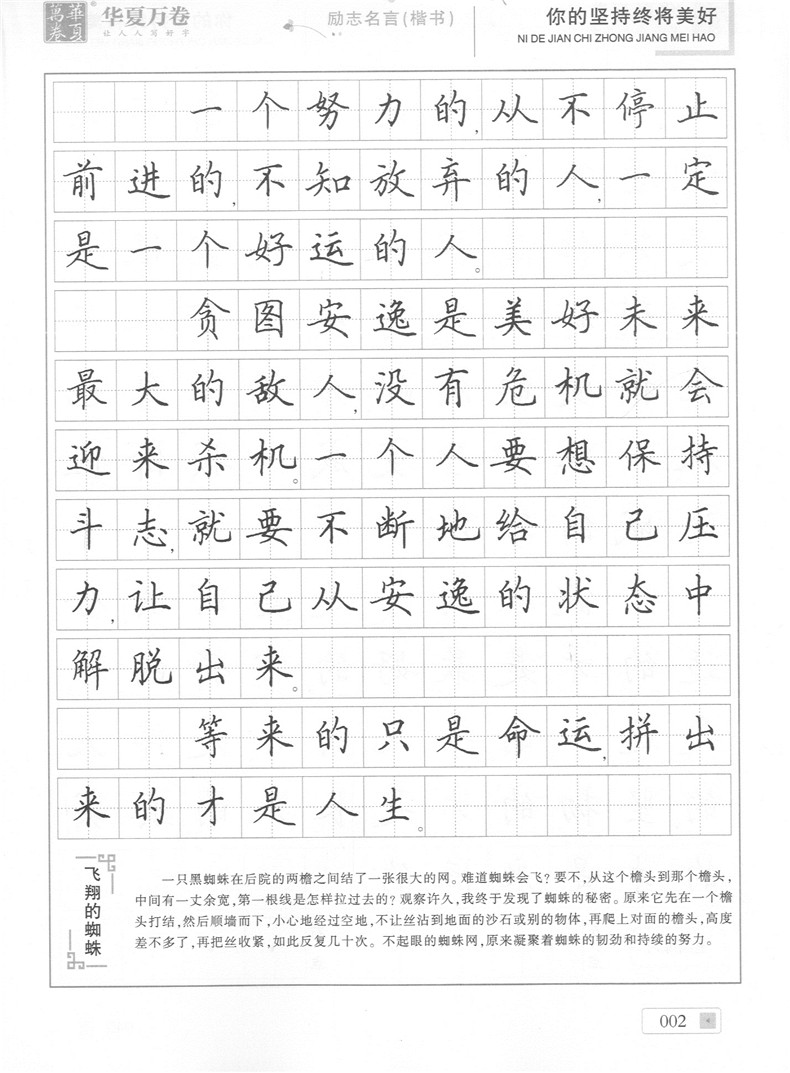 萬卷 華夏
华夏万卷
让人人写好字
励志名言(楷书)
你的坚持终将美好
NI DE JIAN CHI ZHONG JIANG MEI HAO
一个努力的,从不停止
前进的,不知放弃的人,一定
是一个好运的人。
贪图安逸是美好未来
最大的敌人,没有危机就会
迎来杀机。一个人要想保持
斗志,就要不断地给自己压
力,让自己从安逸的状态中
解脱出来。
等来的只是命运,拼出
来的才是人生。
飞翔的蜘蛛
一只黑蜘蛛在后院的两檐之间结了一张很大的网。难道蜘蛛会飞?要不,从这个檐头到那个檐头,
中间有一丈余宽,第一根线是怎样拉过去的?观察许久,我终于发现了蜘蛛的秘密。原来它先在一个檐
头打结,然后顺墙而下,小心地经过空地,不让丝沾到地面的沙石或别的物体,再爬上对面的檐头,高度
差不多了,再把丝收紧,如此反复几十次。不起眼的蜘蛛网,原来凝聚着蜘蛛的韧劲和持续的努力。
002